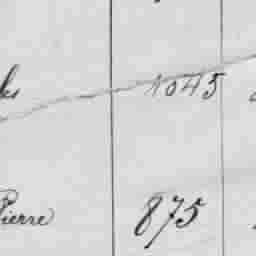 1045
Pierre 875